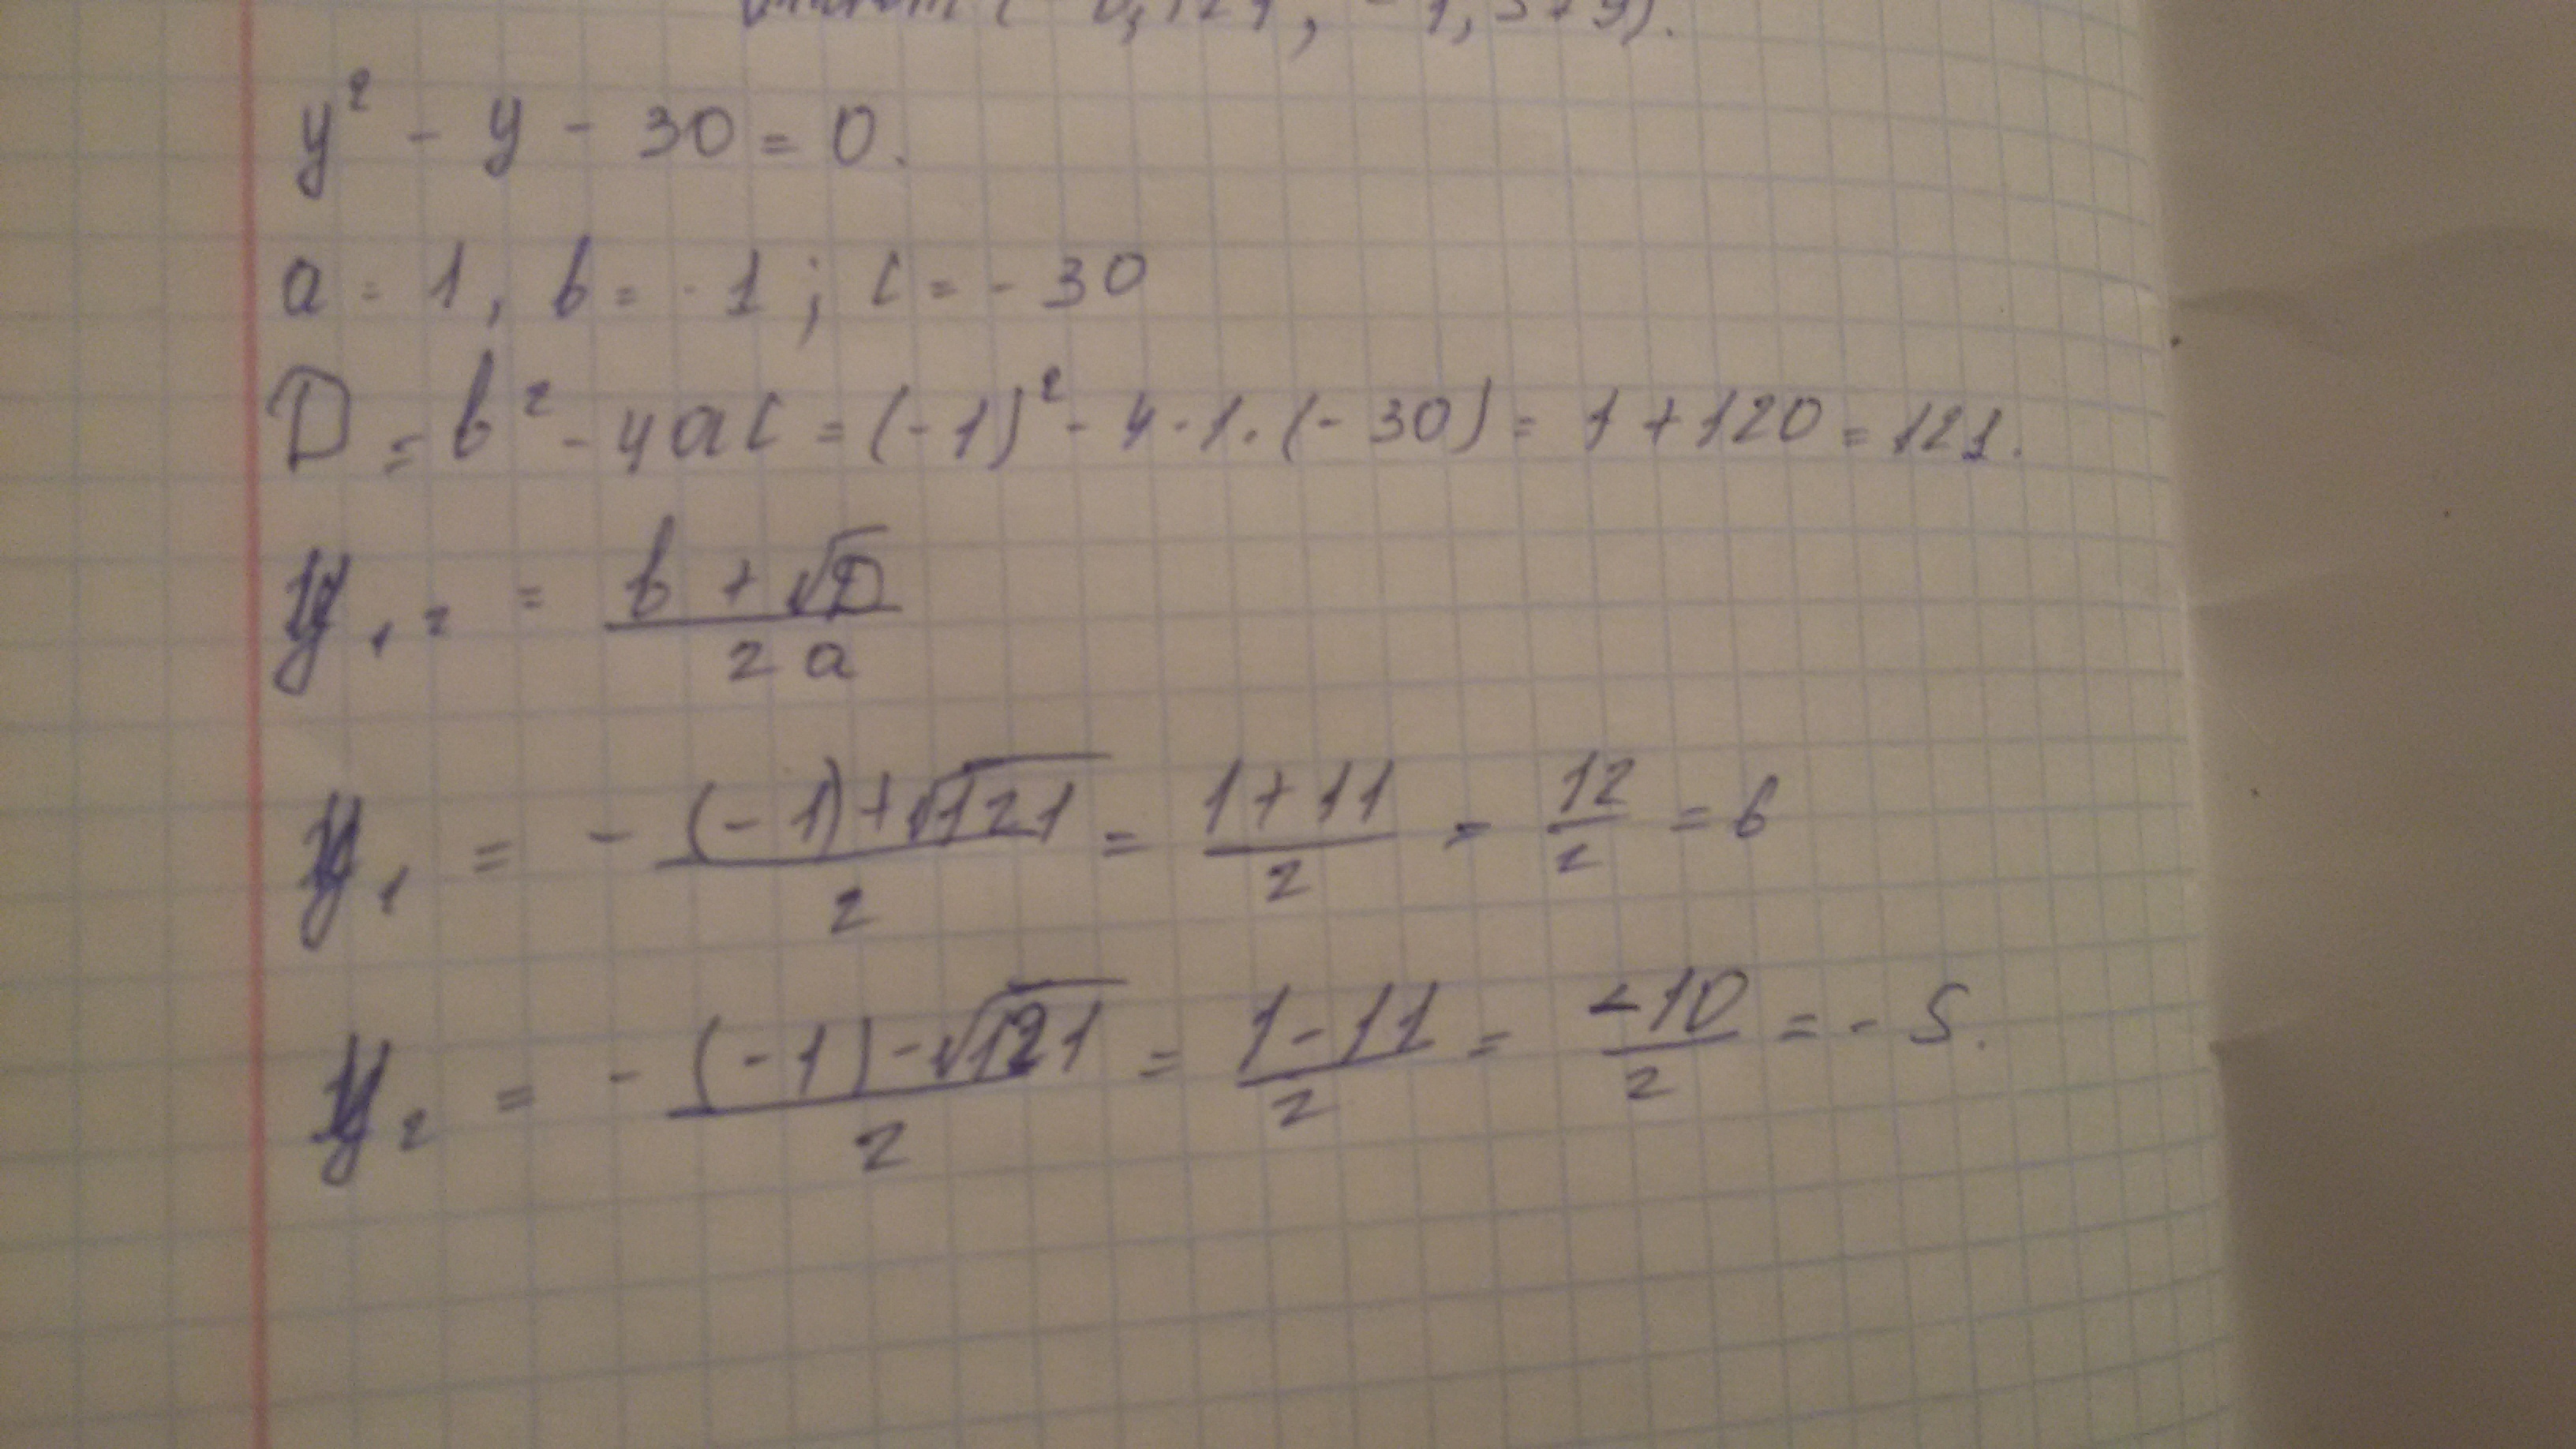 y² - y - 30 = 0.
a = 1, b = -1; c = -30
D = b² - 4ac = (-1)² - 4·1·(-30) = 1 + 120 = 121.
y₁ ₂ = (b + √D) / 2a
y₁ = -(-1)+√121 / 2 = 1+11 / 2 = 12 / 2 = 6
y₂ = -(-1)-√121 / 2 = 1-11 / 2 = -10 / 2 = -5.